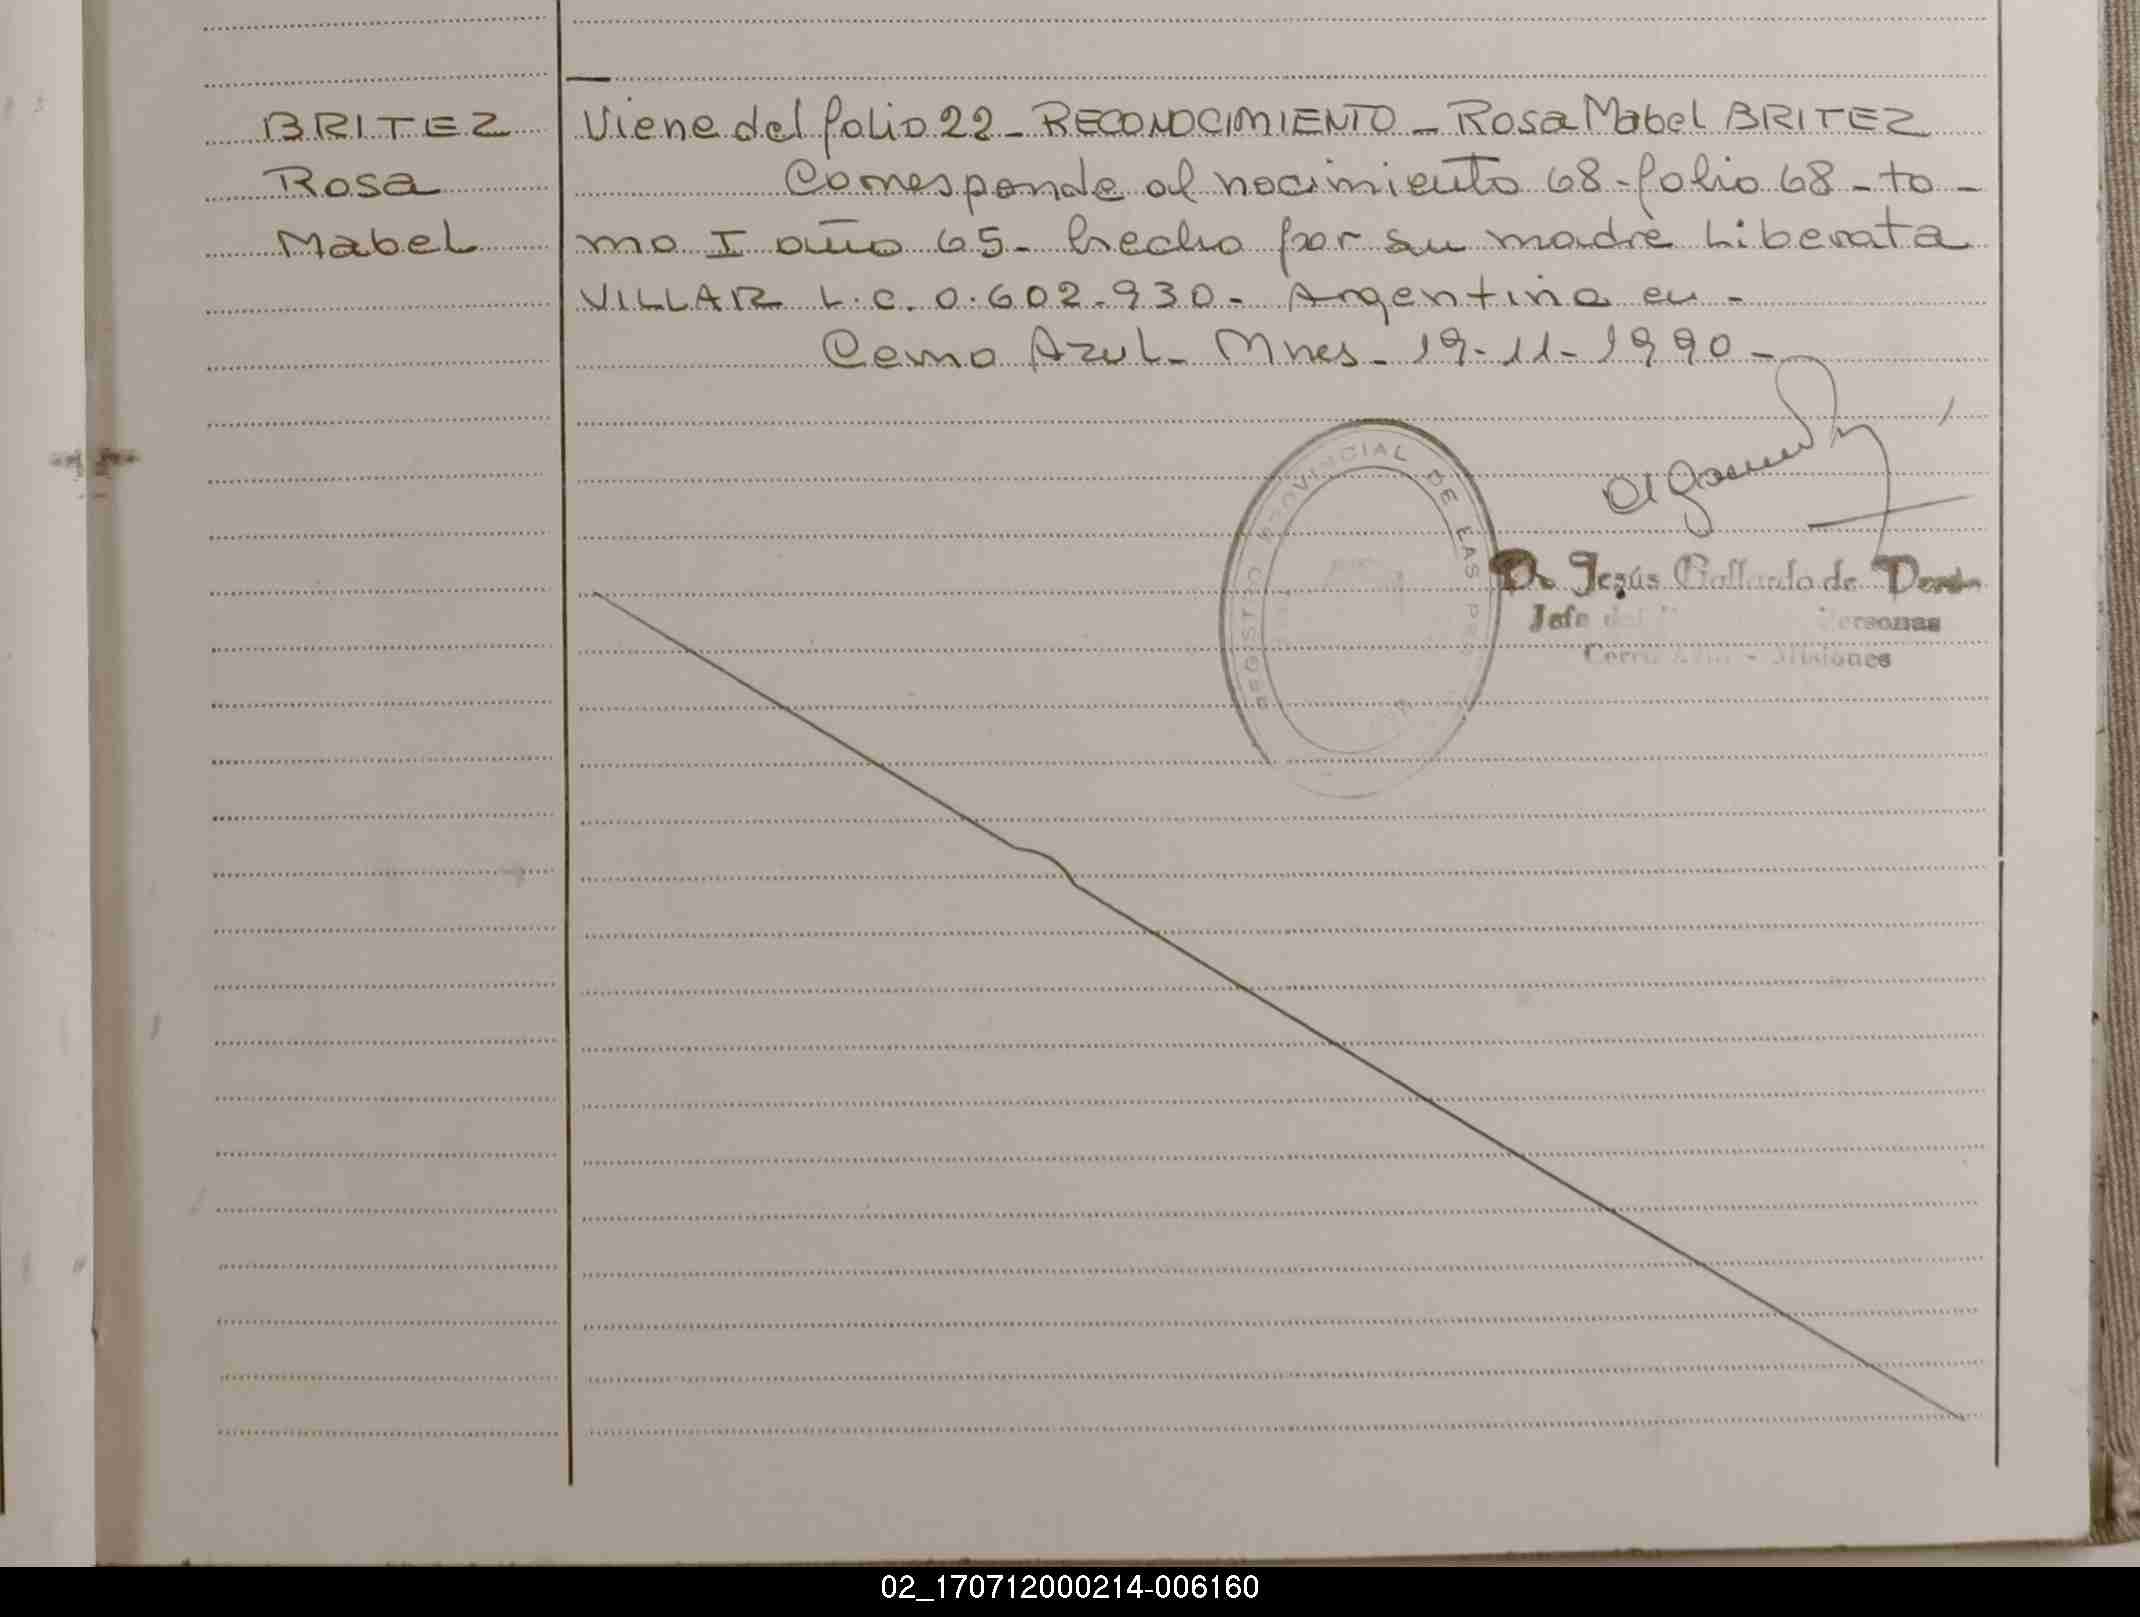 BRITEZ
Rosa
Mabel
Viene del folio 22 - RECONOCIMIENTO - Rosa Mabel BRITEZ
Corresponde al nacimiento 68 - folio 68 - to -
mo I año 65 - hecho por su madre Liberata
VILLAR L.C. 0.602.930 - Argentina en -
Cerro Azul - Mnes - 19-11-1990 -
REGISTRO PROVINCIAL DE LAS PER
Jesús Gallardo de
Jefe del Personas
Cerro Azul - Misiones
02_170712000214-006160